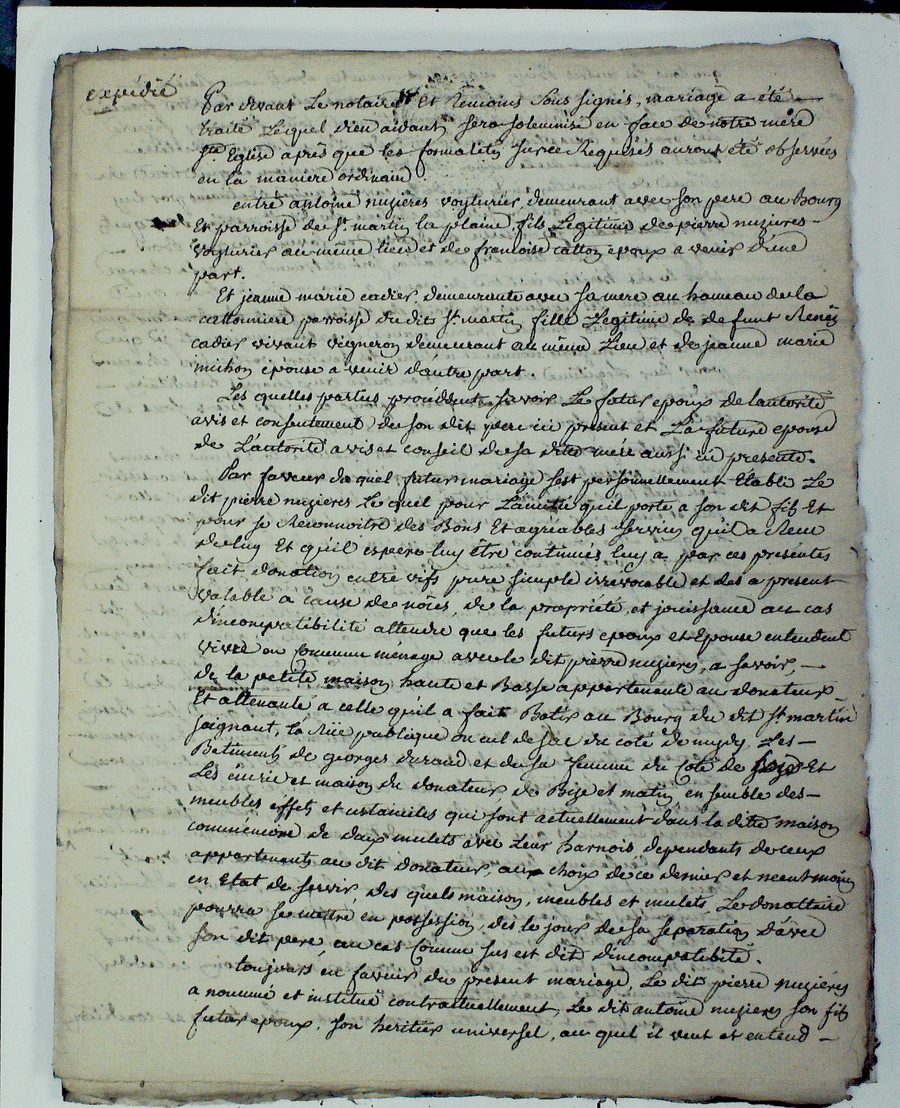 expédié
Par devant Le notaire Et temoins Sous signés, mariage a été
traité Lequel dieu aidant sera solemnisé en face de notre mere
Ste Eglise après que les formalités sur ce Requises auront été observées
en la maniere ordinaire
entre antoine nuzieres voyturier, demeurant avec son pere au Bourg
Et parroisse de St. martin la plaine, fils Legitime de pierre nuzieres
voyturier au même lieu et de francoise catton epoux a venir d'une
part.
Et jeanne marie cadier, demeurante avec sa mere au hameau de la
cattonniere parroisse du dit St. martin fille Legitime de defunt Remy
cadier vivant vigneron demeurant au même Lieu et de jeanne marie
michon epouse a venir d'autre part.
Les quelles parties procédent, savoir Le futur epoux de lautorité
avis et consentement de son dit pere ici present et La future epouse
de L'autorité avis et conseil de sa dite mére aussi ici presente.
Par faveur du quel futur mariage s'est personnellement Etabli Le
dit pierre nuzieres Le quel pour L'amitié qu'il porte a son dit fils Et
pour se Reconnoitre des Bons Et agreables services qu'il a Recu
de luy Et qu'il espere luy être continués luy a par ces presentes
fait donation entre vifs pure simple irrévocable et des a present
valable a cause de nôces, de la propriété et jouissance au cas
d'incompatibilité attendu que les futurs epoux et Epouse entendent
vivre en commun menage avec le dit pierre nuzieres, a savoir,
de la petite maison haute et Basse appartenante au donateur
Et attenante a celle qu'il a fait Batir au Bourg du dit St. martin
joignant, la Rüe publique ou cul de sac du coté de mydy Les
Batiments de georges durand et de sa femme du coté de soir Et
Les écurie et maison du donateur de Bize et matin, ensemble des
meubles effets et ustanciles qui sont actuellement dans la dite maison
comm'encore de deux mulets avec Leur harnois dependants de ceux
appartenants au dit donateur, au choix de ce dernier et neentmoins
en Etat de servir, des quels maison, meubles et mulets, Le donattaire
pourra se mettre en possession, dès le jour de sa separation d'avec
son dit pere, au cas comme sus est dit d'incompatibilité.
toujours en faveur du présent mariage, Le dit pierre nuziéres
a nommé et institué contractuellement, Le dit antoine nuzieres son fils
futur epoux, son heritier universel, au quel il veut et entend